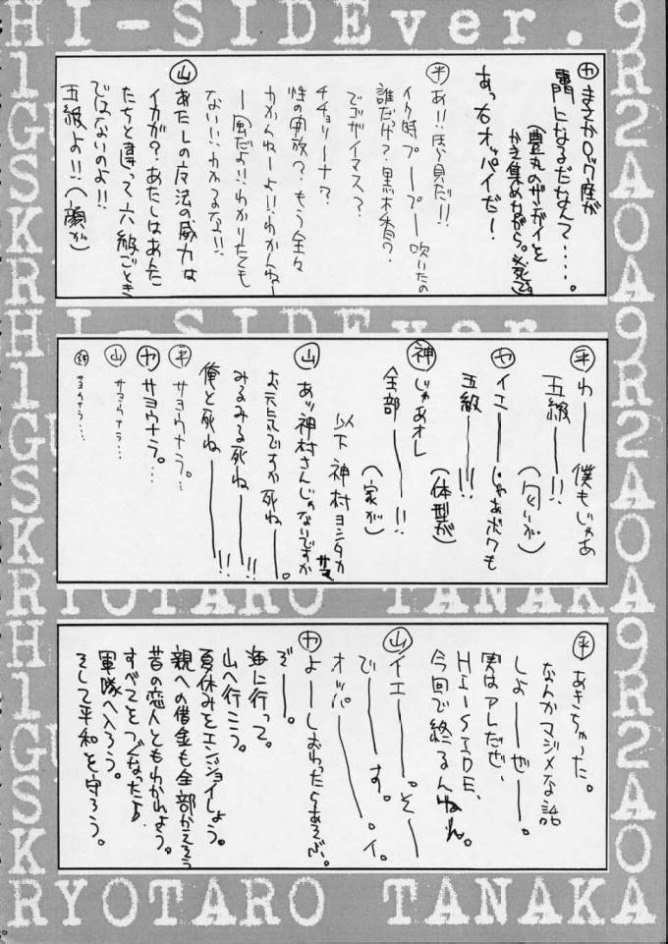 HI-SIDEver.
9R2AOA9R2AOA
H1GSKRH1GUSK
㋳ まさかロック座が
専門になるだなんて‥‥。
(豊丸のザンガイを
かき集めながら。発で)
あっ右オッパイだー!
㋪ あ!!馬見だ!!
イク時プープー吹いたの
誰だっけ?黒木香?
でゴザイマス?
チチョリーナ?
性の開放?もう全々
わかんねーよ!!わかんねー
ない!!わかるなよ!!
㊤ あたしの反法の威力は
イカが?あたしはあんた
たちと違って六級ごとき
ではないのよ!!
五級よ!!(顔が)
HI-SIDEver.
㊥ わーー僕もじゃあ
五級ーー!!
(匂いが)
㋳ イエーーじゃあボクも
五級ーー!!!
(体型が)
神 じゃあオレ
全部ーーー!!
(家が)
以下 神村ヨシタカ
サマ
山 あッ神村さんじゃないですか
お元気ですか死ねーー。
みるみる死ねーー!!
俺と死ねーーー!!
平 サヨウナラ。‥
ヤ サヨウナラ。‥
山 サヨウナラ‥
サヨウナラ‥
RYOTARO TANAKA
平 あきちゃった。
なんかマジメな話
しよーーぜーー。
実はアレだぜ、
HI-SIDE、
今回で終るんだね。
山 イエーー。そーー
でーーす。
オッパーーー。イ。
ヤ よーーしおわったらあそぶ
ぞーー。
海に行って。
山へ行こう。
夏休みをエンジョイしょう。
親への借金も全部かえそう
昔の恋人ともわかれよう。
すべてをつぐなったら
軍隊へ入ろう。
そして平和を守ろう。
RYOTARO TANAKA